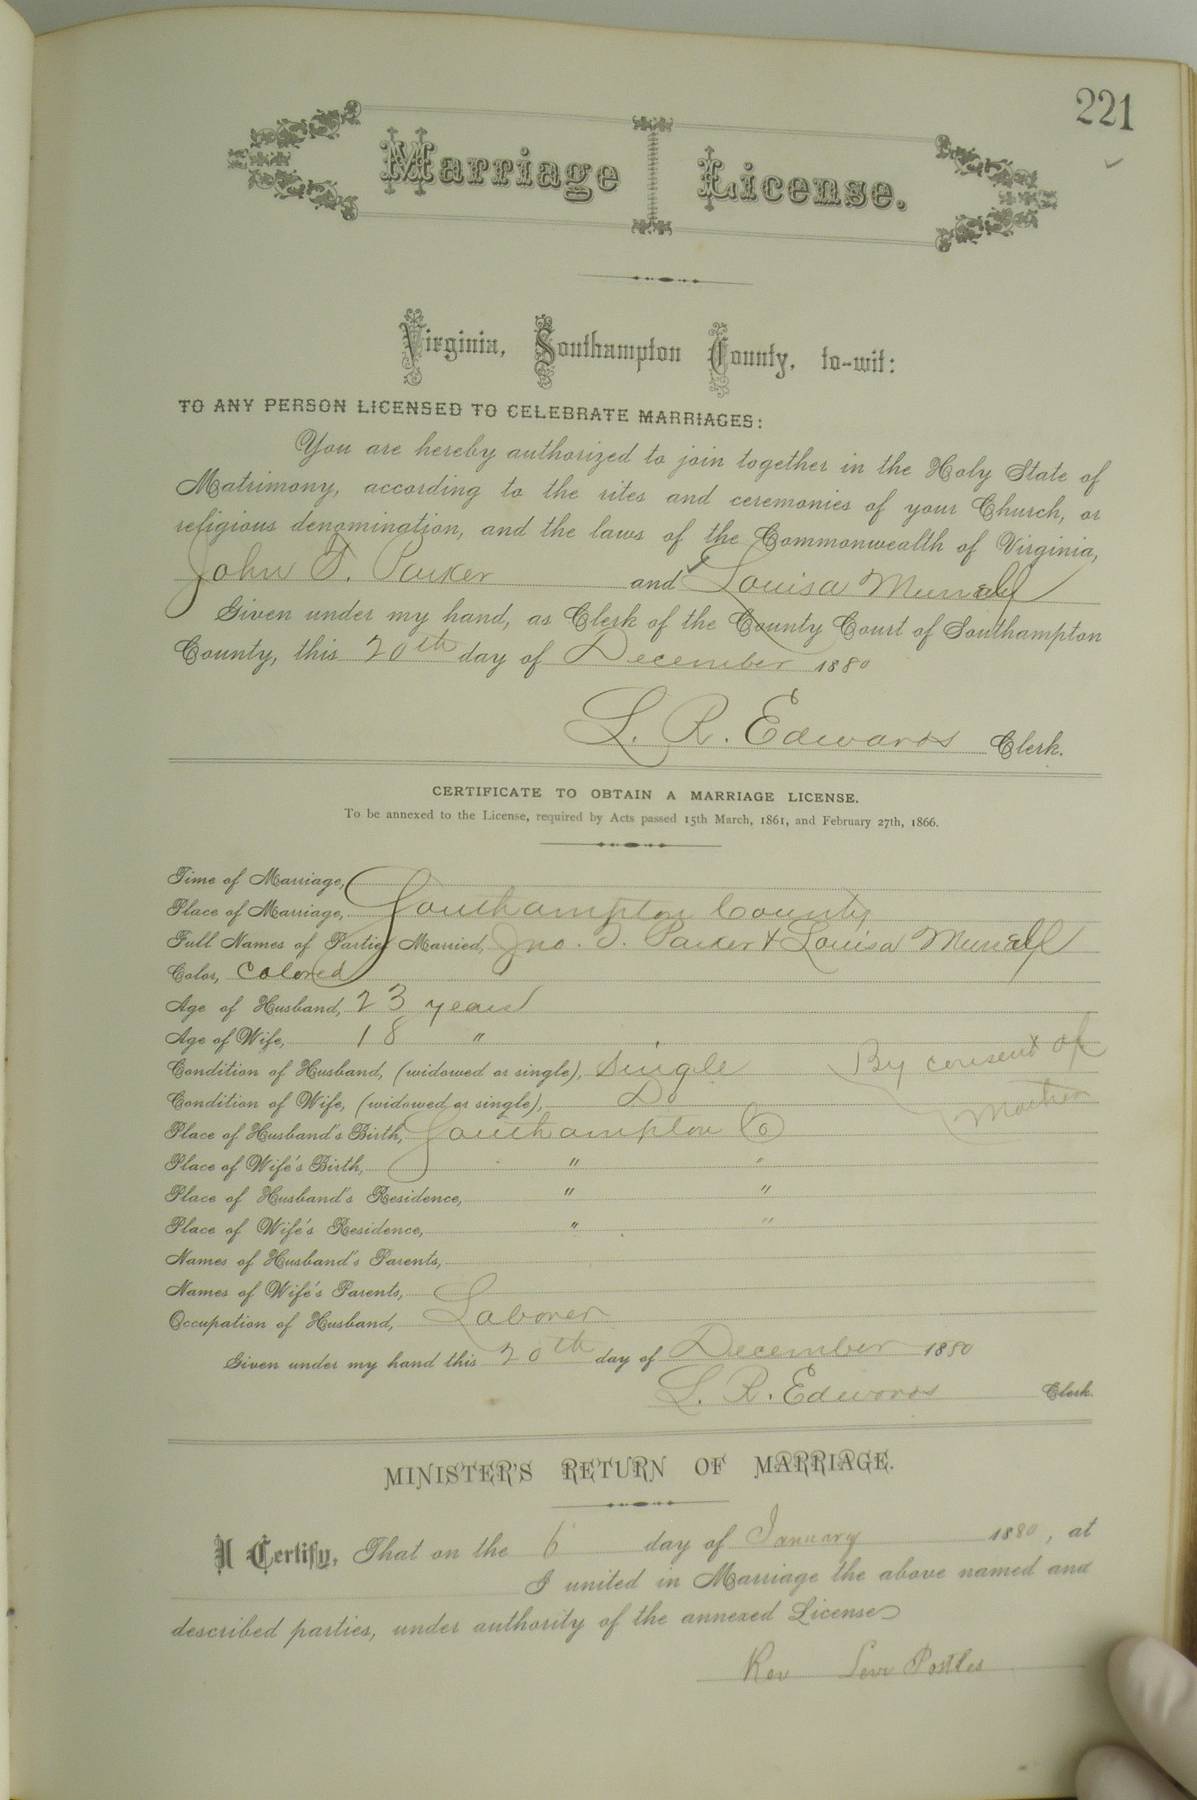 221
Marriage License.
Virginia, Southampton County, to-wit:
TO ANY PERSON LICENSED TO CELEBRATE MARRIAGES:
You are hereby authorized to join together in the Holy State of
Matrimony, according to the rites and ceremonies of your Church, or
religious denomination, and the laws of the Commonwealth of Virginia,
John T. Parker and Louisa Murrell
Given under my hand, as Clerk of the County Court of Southampton
County, this 20th day of December 1880
L. R. Edwards Clerk.
CERTIFICATE TO OBTAIN A MARRIAGE LICENSE.
To be annexed to the License, required by Acts passed 15th March, 1861, and February 27th, 1866.
Time of Marriage,
Place of Marriage, Southampton County
Full Names of Parties Married, Jno. T. Parker & Louisa Murrell
Color, Colored
Age of Husband, 23 years
Age of Wife, 18 "
Condition of Husband, (widowed or single), Single By consent of
Condition of Wife, (widowed or single), Do Mother
Place of Husband's Birth, Southampton Co
Place of Wife's Birth, " "
Place of Husband's Residence, " "
Place of Wife's Residence, " "
Names of Husband's Parents,
Names of Wife's Parents,
Occupation of Husband, Laborer
Given under my hand this 20th day of December 1880
L. R. Edwards Clerk.
MINISTER'S RETURN OF MARRIAGE.
I Certify, That on the 6 day of January 1880, at
I united in Marriage the above named and
described parties, under authority of the annexed License
Rev Levi Postles